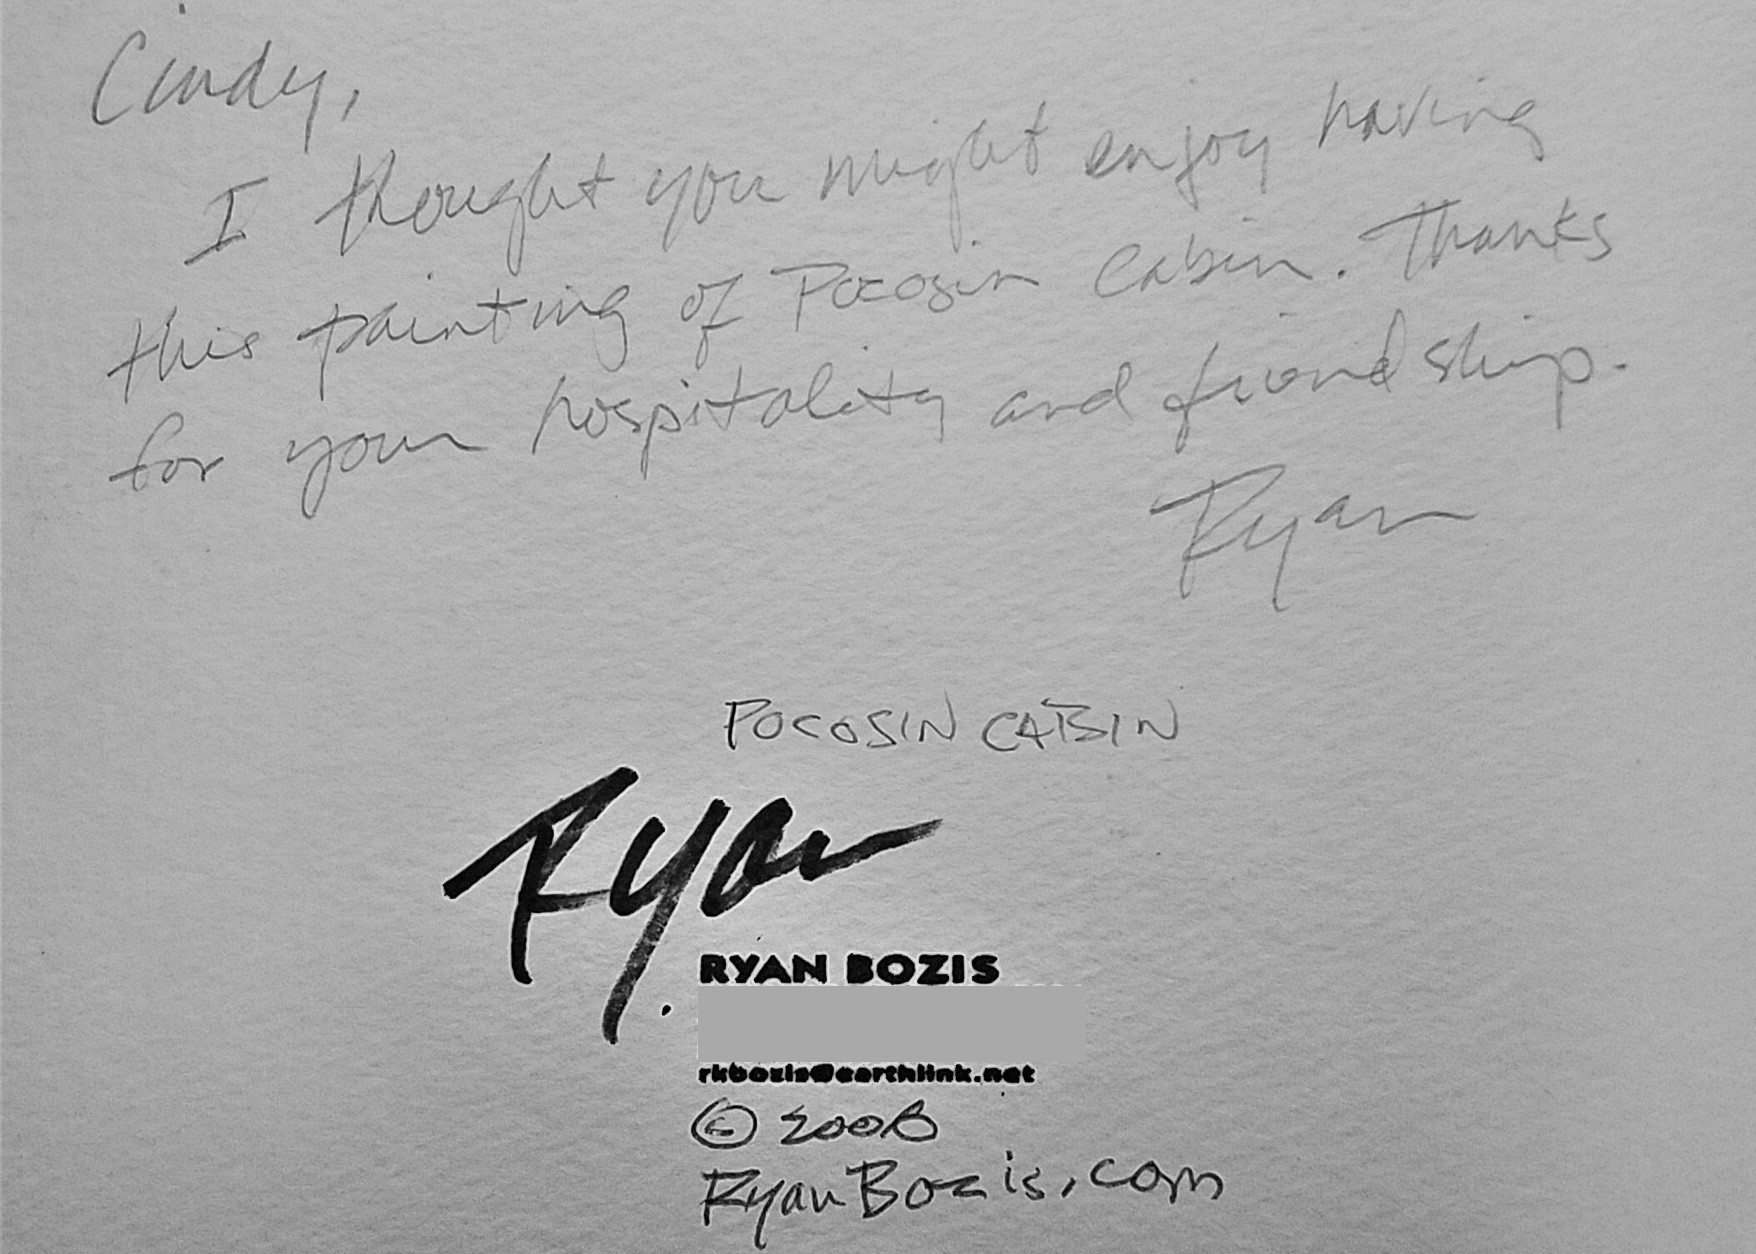 Cindy,
I thought you might enjoy having
this painting of Pocosin Cabin. Thanks
for your hospitality and friendship.
Ryan
POCOSIN CABIN
Ryan
RYAN BOZIS
rkbozis@earthlink.net
© 2008
RyanBozis.com